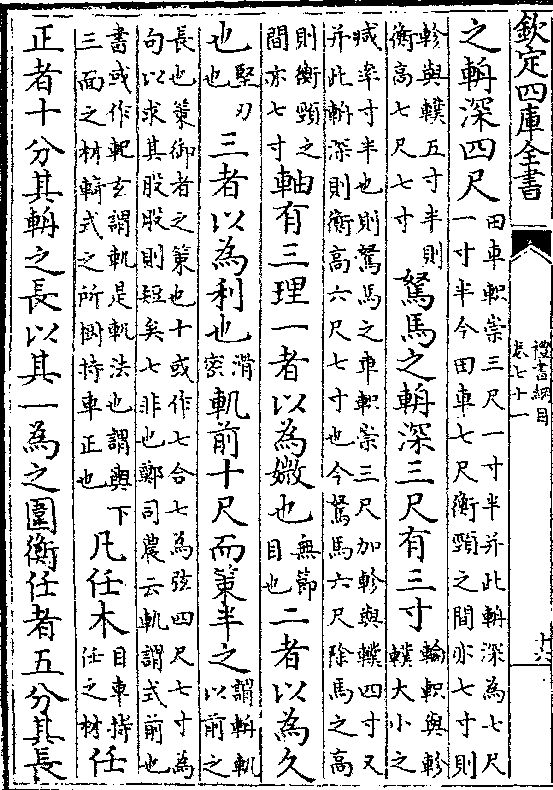 欽定四庫全書
禮書綱目
卷七十一
十六
之輈深四尺田車軹崇三尺一寸半并此輈深為七尺
一寸半今田車七尺衡頸之間亦七寸則
軫與轐五寸半則
衡高七尺七寸駑馬之輈深三尺有三寸輪軹與軫
轐大小之
減率寸半也則駑馬之車軹崇三尺加軫與轐四寸又
并此輈深則衡高六尺七寸也今駑馬六尺除馬之高
則衡頸之
間亦七寸軸有三理一者以為媺也無節
目也二者以為久
也堅刃
也三者以為利也滑
密軓前十尺而策半之謂輈軓
以前之
長也策御者之策也十或作七合七為弦四尺七寸為
句以求其股股則短矣七非也鄭司農云軓謂式前也
書或作玄謂軓是軓法也謂輿下
三面之材輢式之所樹持車正也凡任木目車持
任之材任
正者十分其輈之長以其一為之圍衡任者五分其長